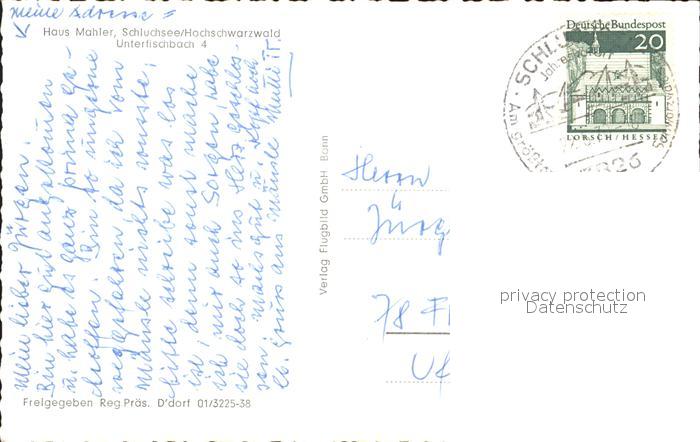 meine Adresse =
Haus Mahler, Schluchsee/Hochschwarzwald
Unterfischbach 4
Mein lieber Jürgen!
Bin hier gut angekommen
u. habe es ganz prima ge-
troffen. Bin so ungerne
weggefahren da ich vom
Mäusle nichts wusste,
bitte schreibe was los
ist, denn sonst mache
ich mir auch Sorgen, habe
sie doch so ins Herz geschlos-
sen. Machs gut u.
Gruss aus Mutti
Freigegeben Reg.Präs. D'dorf 01/3225-38
Verlag Flugbild GmbH Bonn
Herrn
Jürg
78 F
Deutsche Bundespost
20
LORSCH/HESSEN
SCHL
7826
privacy protection
Datenschutz